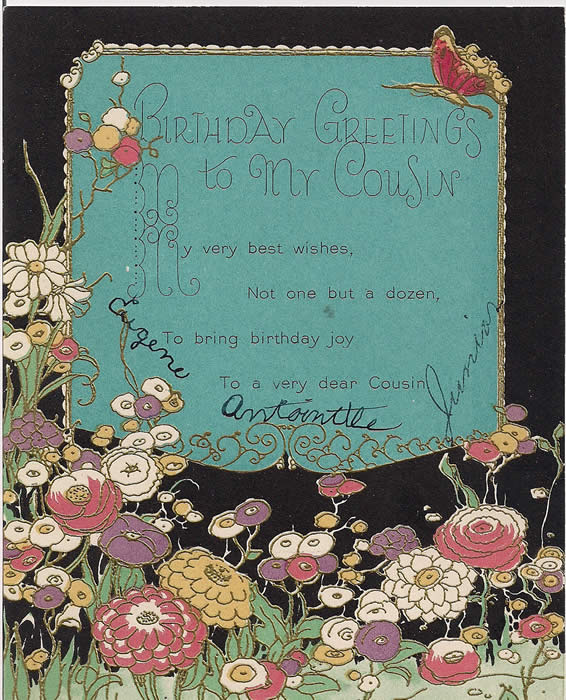 Birthday Greetings
to My Cousin
My very best wishes,
Not one but a dozen,
To bring birthday joy
To a very dear Cousin
Eugene
Antointte
Junior